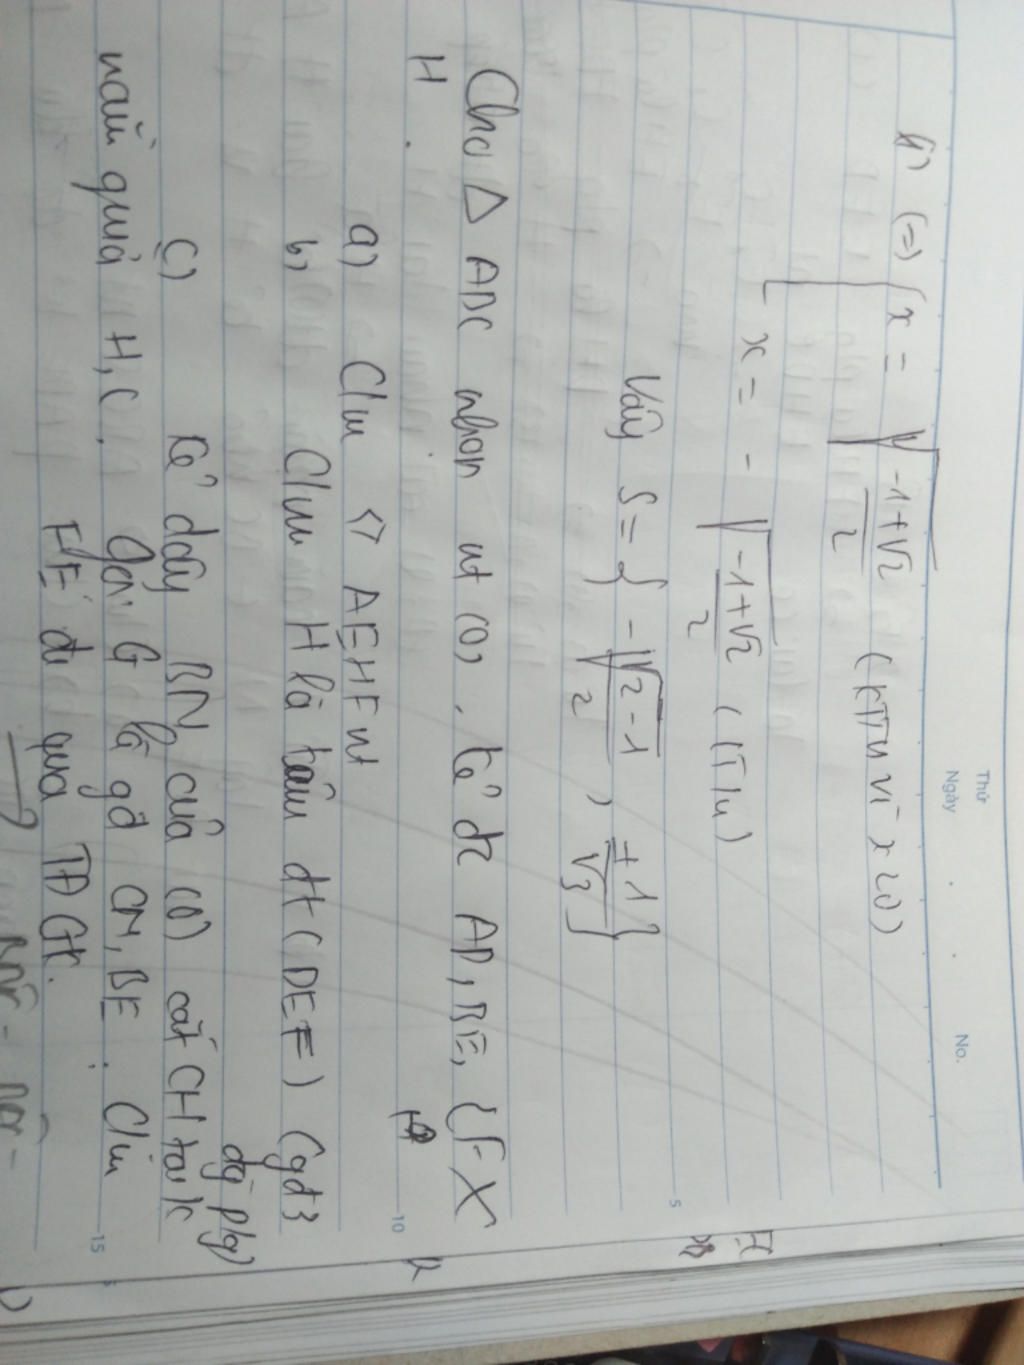 Thứ
Ngày
No.
(=) [ x = √((-1+√2)/2) (KTM vì x≥0)
x = - √((-1+√2)/2) (TM)
Vậy S = { -√((√2-1)/2) , ±1/√3 }
5
Cho △ ABC nhọn nt (O), kẻ đc AD, BE, CF X
H.
10
a) C/m <> AEHF nt
b) C/m H là tâm dt (DEF) (gđ 3
đg p/g)
c) Kẻ dây BM của (O) cắt CH tại K
nằm giữa H, C. Gọi G là gđ CM, BE. C/m
15
FE đi qua TĐ GK.